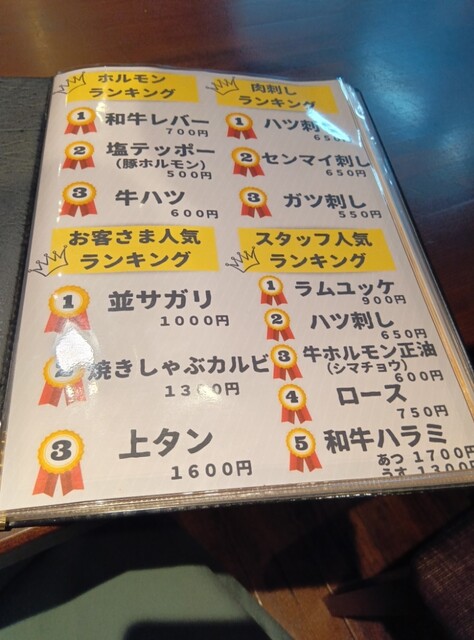 ホルモン
ランキング
1 和牛レバー
700円
2 塩テッポー
(豚ホルモン)
500円
3 牛ハツ
600円
肉刺し
ランキング
1 ハツ刺
650
2 センマイ刺し
650円
3 ガツ刺し
550円
お客さま人気
ランキング
1 並サガリ
1000円
2 焼きしゃぶカルビ
1300円
3 上タン
1600円
スタッフ人気
ランキング
1 ラムユッケ
900円
2 ハツ刺し
650円
3 牛ホルモン正油
(シマチョウ)
600円
4 ロース
750円
5 和牛ハラミ
あつ 1700円
うす 1300円